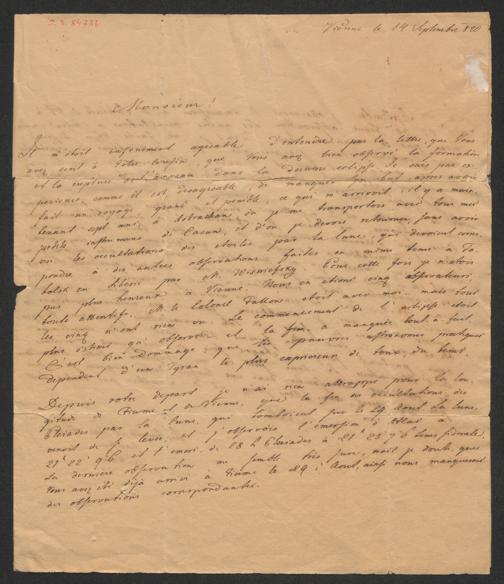 Vienne le 14 Septembre 820
Monsieur!
Il m'étoit infiniment agréable d'entendre par la lettre, que Vous
avez écrit à notre que Vous avez bien observé la formation
et la rupture de l'anneau dans la dernière eclipse. Je sais par ex-
perience, comme il est desagreable, de manquer son but, après avoir
fait un voyage grand et penible, ce qui m'arrivoit, il y a main-
tenant sept mois, à Astrachan, où je me transportois avec tous mes
petits instrumens de Casan, et d'où je devois retourner sans avoir
vu les occultations des etoiles par la lune, qui devoient corres-
pondre à des autres observations faites en même tems à To-
bolsk en Siberie par Mr Wisniefsky. Cette fois je n'étois
pas plus heureux à Vienne. Nous en étions cinq observateurs,
touts attentifs. Mr le Colonel Fallon étoit avec moi, mais tous
les cinq n'ont rien vu. Le commencement de l'eclipse étoit
plus distinct qu'observé et la fin a manquée tout à fait.
C'est bien dommage que les pauvres astronomes pratiques
dependent d'un tyran le plus capricieux de tous, du tems.
Depuis votre depart je n'ai rien attrappé pour la lon-
gitude de Fiume et de Vienne, que la fin des occultations des
Pleiades par la lune, qui tomboient sur le 29 Aout. La lune
venoit de se lever, et j'observois l'emersion d'Atlas à
21h 22' et l'emers. de 28 Pleiades à 21h 28' tems siderale.
La derniere observation me semble très sure, mais je doute, que
Vous ayez été déjà arrivé à Fiume le 29 d'Aout, ainsi nous manqueront
des observations correspondantes.